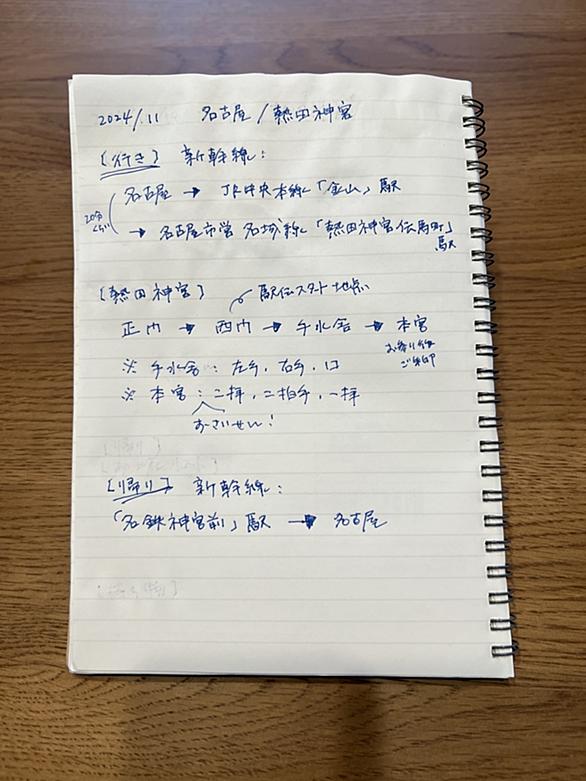 2024/.11 名古屋/熱田神宮
[行き] 新幹線:
名古屋 → JR中央本線「金山」駅
20分くらい
→ 名古屋市営 名城線「熱田神宮伝馬町」駅
[熱田神宮] 駅伝スタート地点
正門 → 西門 → 手水舎 → 本宮
お参り後
ご朱印
※ 手水舎:左手,右手,口
※ 本宮:二拝,二拍手,一拝
おさいせん!
[帰り] 新幹線:
「名鉄神宮前」駅 → 名古屋